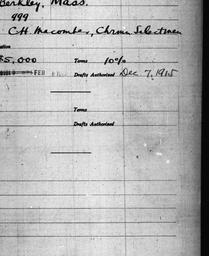 Berkley, Mass.
499
C.H. Macomber, Chrmn Selectmen
$5,000 Terms 10%
FEB Drafts Authorized Dec 7, 1915
Terms
Drafts Authorized